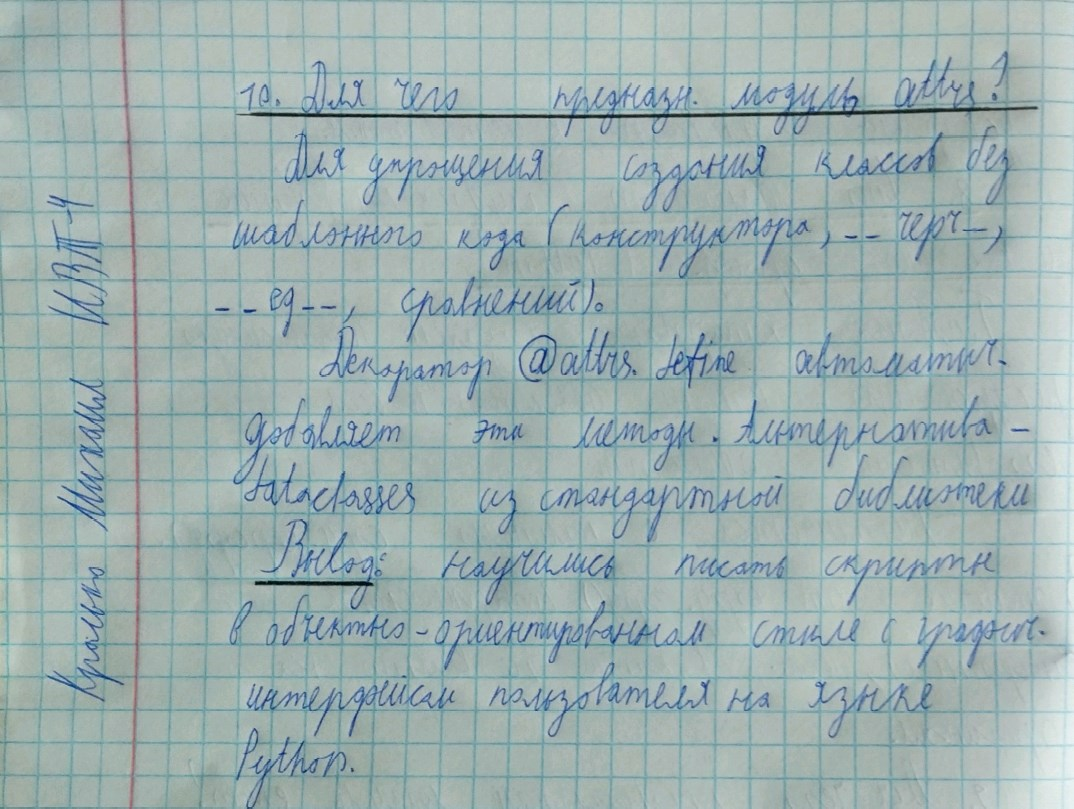 10. Для чего предназн. модуль attrs?
Для упрощения создания классов без
шаблонного кода (конструктора, -- черч--,
--eq--, сравнений).
Декоратор @attrs. define автоматич.
добавляет эти методы. Альтернатива -
dataclasses из стандартной библиотеки
Вывод: научились писать скрипты
в объектно-ориентированном стиле с графич.
интерфейсом пользователя на языке
Python.
Кралько Михаил ИВТ-4